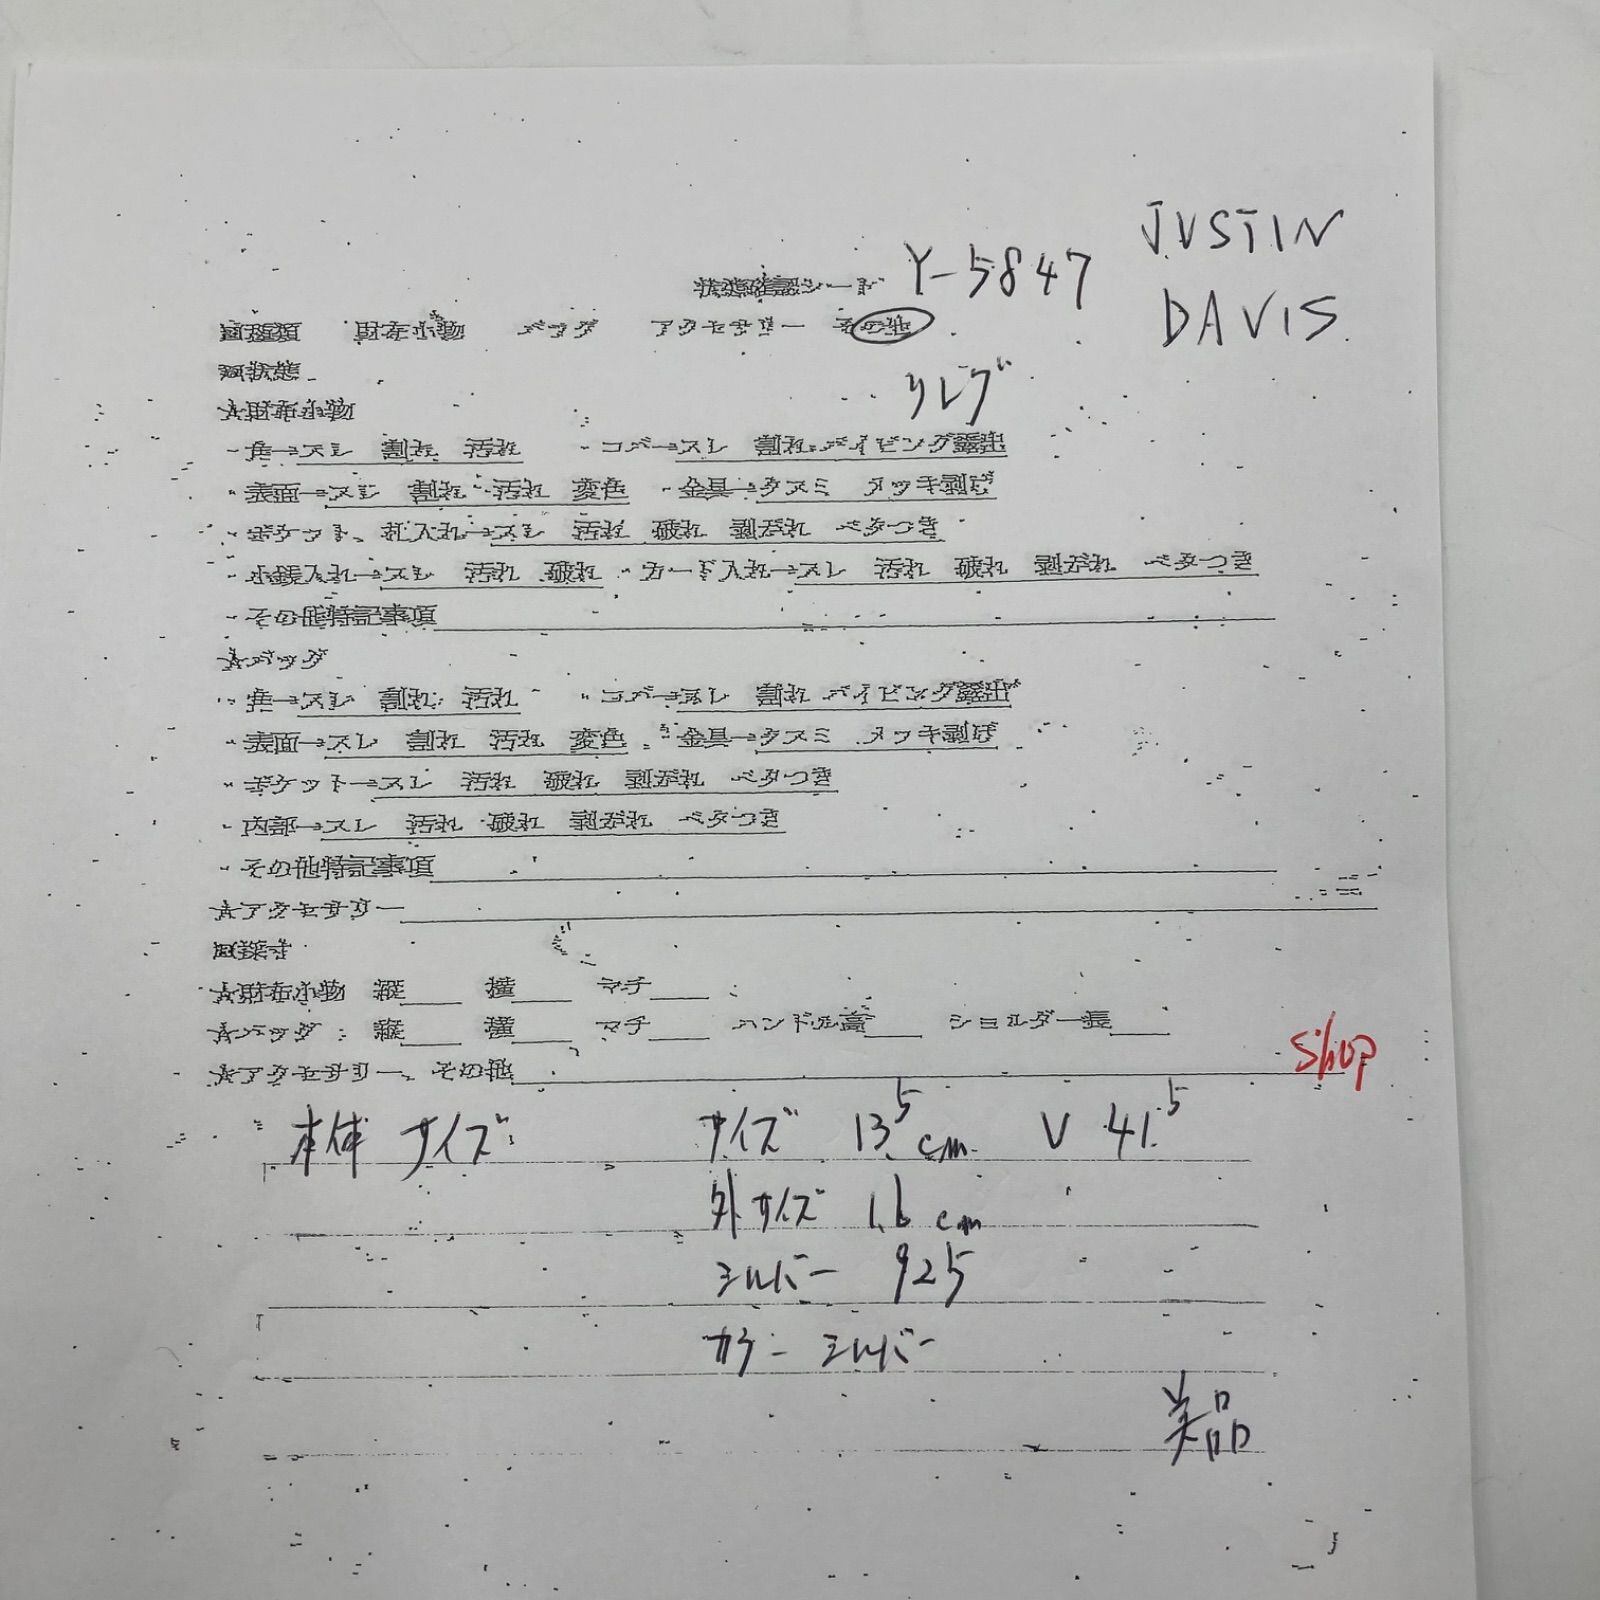 JUSTIN
状態確認シート Y-5847
DAVIS
■種類 財布小物 バッグ アクセサリー その他
■状態
リング
☆財布小物
・角→スレ 割れ 汚れ ・コバ→スレ 割れ パイピング露出
・表面→スレ 割れ 汚れ 変色 ・金具→クスミ メッキ剥げ
・ポケット、札入れ→スレ 汚れ 破れ 型崩れ ベタつき
・小銭入れ→スレ 汚れ 破れ ・カード入れ→スレ 汚れ 破れ 型崩れ ベタつき
・その他特記事項
☆バッグ
・角→スレ 割れ 汚れ ・コバ→スレ 割れ パイピング露出
・表面→スレ 割れ 汚れ 変色 ・金具→クスミ メッキ剥げ
・ポケット→スレ 汚れ 破れ 型崩れ ベタつき
・内部→スレ 汚れ 破れ 型崩れ ベタつき
・その他特記事項
☆アクセサリー
■採寸
☆財布小物 縦 横 マチ
☆バッグ 縦 横 マチ ハンドル高 ショルダー長
☆アクセサリー、その他
shop
本体サイズ サイズ 13.5cm V 41.5
外サイズ 1.6cm
シルバー 925
カラー シルバー
美品